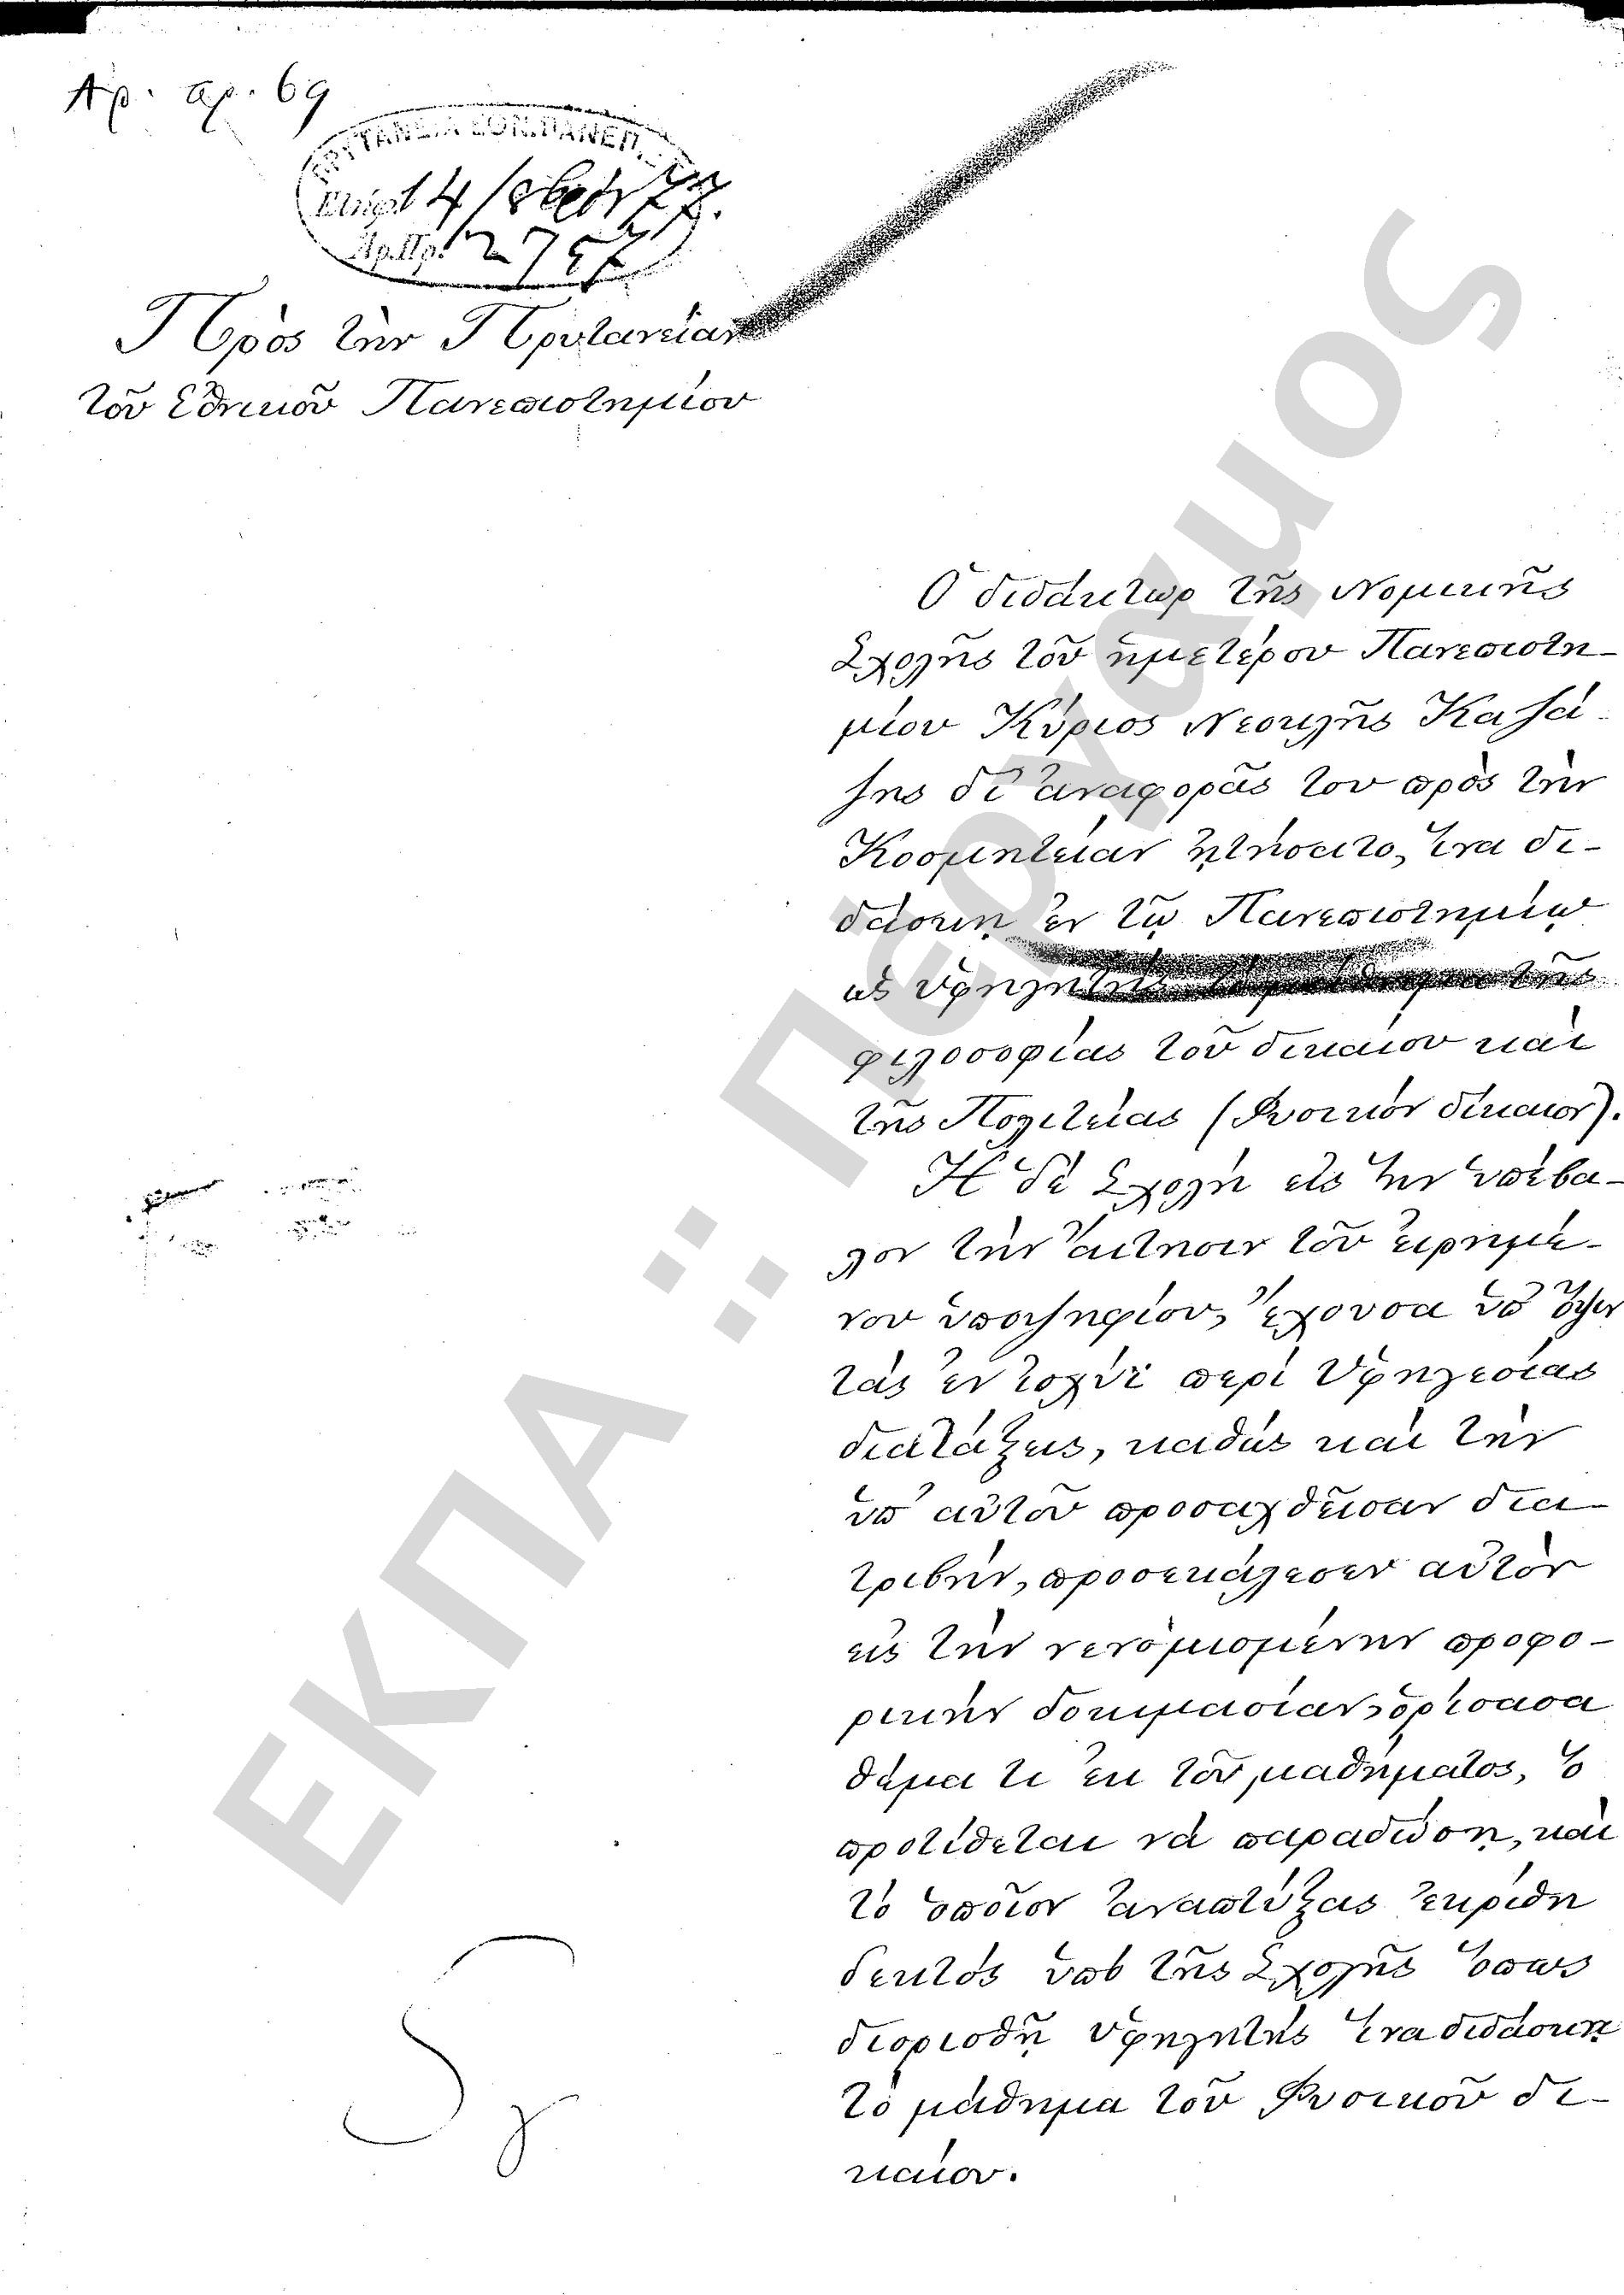 Αρ. πρ. 69
ΠΡΥΤΑΝΕΙΑ ΕΘΝ. ΠΑΝΕΠ.
14 77.
Αρ. Πρ. 2757
Πρὸς τὴν Πρυτανείαν
τοῦ Ἐθνικοῦ Πανεπιστημίου
Ὁ διδάκτωρ τῆς Νομικῆς
Σχολῆς τοῦ ἡμετέρου Πανεπιστη-
μίου Κύριος Νεοκλῆς Καζά-
ζης δι' ἀναφορᾶς του πρὸς τὴν
Κοσμητείαν ᾐτήσατο, ἵνα δι-
δάσκῃ ἐν τῷ Πανεπιστημίῳ
ὡς ὑφηγητὴς τὸ μάθημα τῆς
φιλοσοφίας τοῦ δικαίου καὶ
τῆς Πολιτείας (Φυσικὸν δίκαιον).
Ἡ δὲ Σχολὴ εἰς ἣν ὑπέβα-
λον τὴν αἴτησιν τοῦ εἰρημέ-
νου ὑποψηφίου, ἔχουσα ὑπ' ὄψιν
τὰς ἐν ἰσχύϊ περὶ Ὑφηγεσίας
διατάξεις, καθὼς καὶ τὴν
ὑπ' αὐτοῦ προσαχθεῖσαν δια-
τριβήν, προσεκάλεσεν αὐτὸν
εἰς τὴν νενομισμένην προφο-
ρικὴν δοκιμασίαν, ὁρίσασα
θέμα τι ἐκ τοῦ μαθήματος, ὃ
προτίθεται νὰ παραδώσῃ, καὶ
τὸ ὁποῖον ἀναπτύξας ἐκρίθη
δεκτὸς ὑπὸ τῆς Σχολῆς ὅπως
διορισθῇ ὑφηγητὴς ἵνα διδάσκῃ
τὸ μάθημα τοῦ Φυσικοῦ δι-
καίου.
ΕΚΠΑ :: Πέργαμος